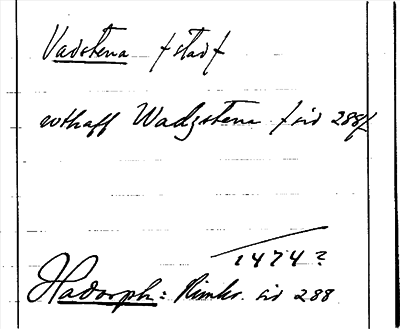 Vadstena f stad f
wthaff Wadzstena f sid 288 f
1474?
Hadorph: Rimkr. sid 288